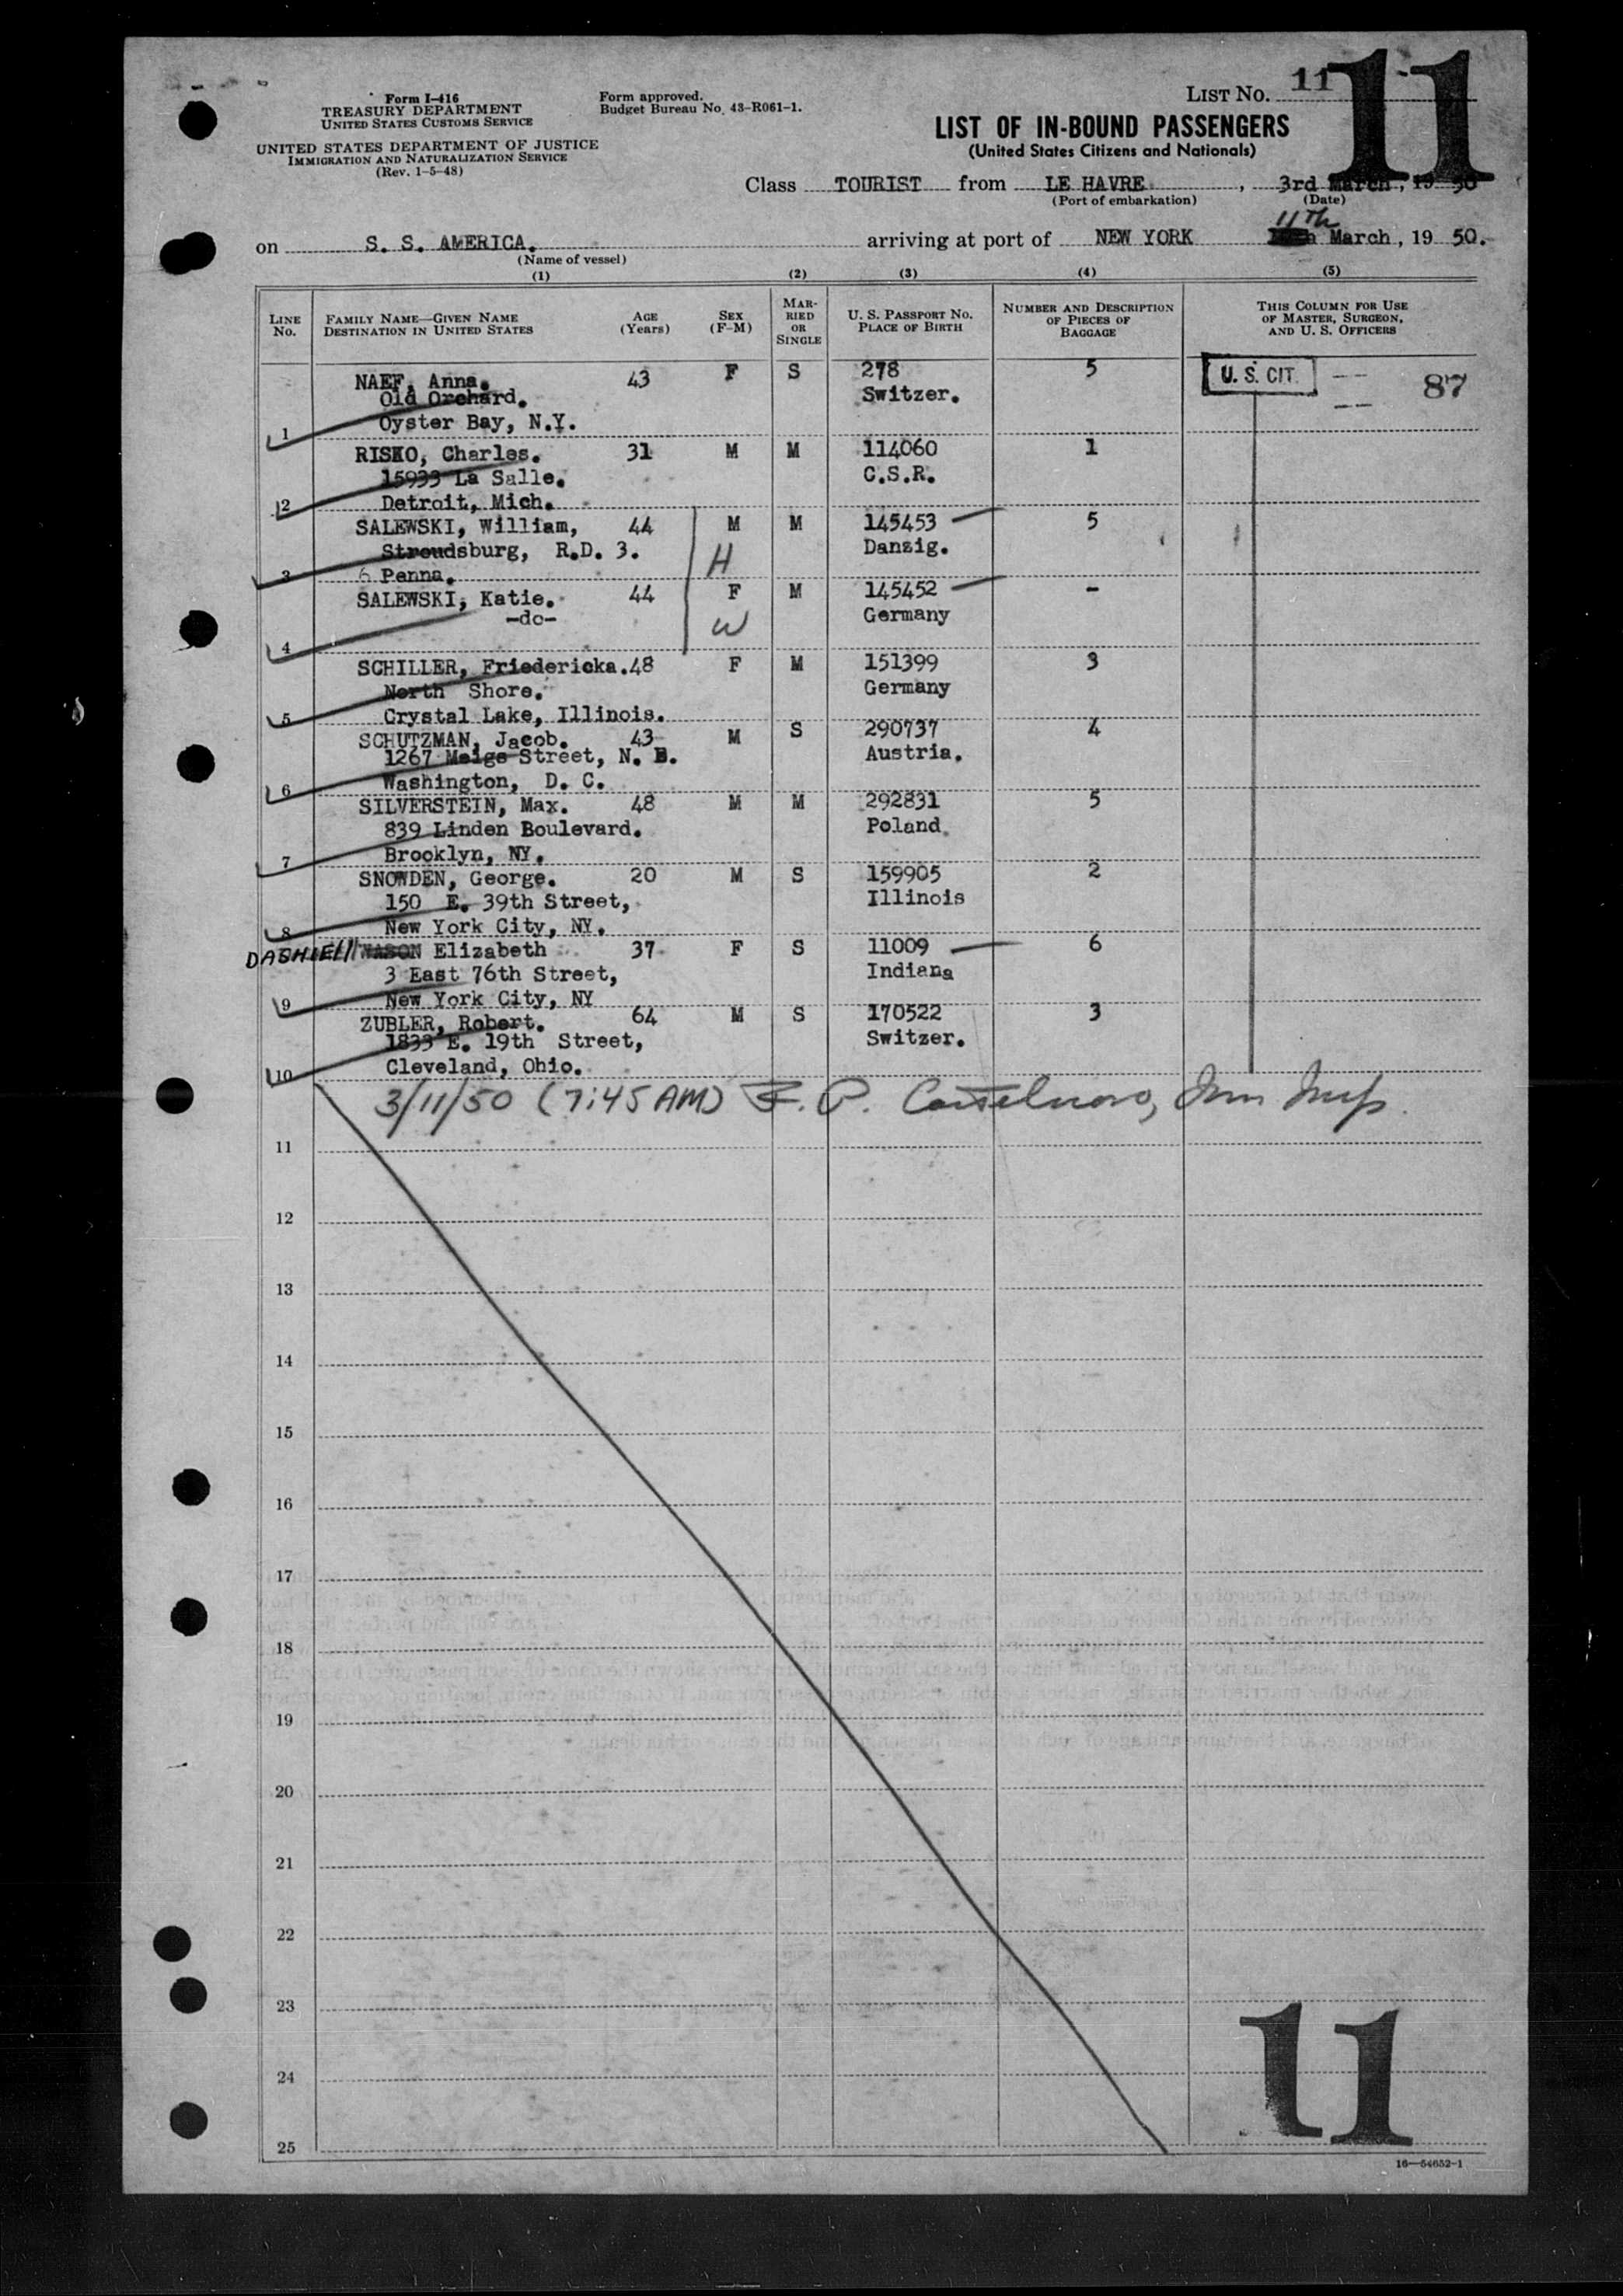 11
Form I-416
TREASURY DEPARTMENT
UNITED STATES CUSTOMS SERVICE
UNITED STATES DEPARTMENT OF JUSTICE
IMMIGRATION AND NATURALIZATION SERVICE
(Rev. 1-5-48)
Form approved.
Budget Bureau No. 43-R061-1.
LIST No. 11
LIST OF IN-BOUND PASSENGERS
(United States Citizens and Nationals)
Class TOURIST from LE HAVRE, 3rd March, 1950
(Port of embarkation) (Date)
on S. S. AMERICA. arriving at port of NEW YORK 11th March, 1950.
(Name of vessel)
(1) (2) (3) (4) (5)
LINE No. FAMILY NAME—GIVEN NAME DESTINATION IN UNITED STATES AGE (Years) SEX (F-M) MARRIED OR SINGLE U. S. PASSPORT No. PLACE OF BIRTH NUMBER AND DESCRIPTION OF PIECES OF BAGGAGE THIS COLUMN FOR USE OF MASTER, SURGEON, AND U. S. OFFICERS
NAEF, Anna. 43 F S 278 5 U. S. CIT. 87
Old Orchard. Switzer.
1 Oyster Bay, N.Y.
RISKO, Charles. 31 M M 114060 1
15933 La Salle. C.S.R.
2 Detroit, Mich.
SALEWSKI, William, 44 M M 145453 5
Stroudsburg, R.D. 3. H Danzig.
3 6 Penna.
SALEWSKI, Katie. 44 F M 145452 -
-do- W Germany
4
SCHILLER, Friedericka. 48 F M 151399 3
North Shore. Germany
5 Crystal Lake, Illinois.
SCHUTZMAN, Jacob. 43 M S 290737 4
1267 Meigs Street, N. E. Austria.
6 Washington, D. C.
SILVERSTEIN, Max. 48 M M 292831 5
839 Linden Boulevard. Poland.
7 Brooklyn, NY.
SNOWDEN, George. 20 M S 159905 2
150 E. 39th Street, Illinois
8 New York City, NY.
DASHIELL WASON Elizabeth 37 F S 11009 6
3 East 76th Street, Indiana
9 New York City, NY
ZUBLER, Robert. 64 M S 170522 3
1833 E. 19th Street, Switzer.
10 Cleveland, Ohio.
3/11/50 (7:45 AM) P. Imm Insp.
11
12
13
14
15
16
17
18
19
20
21
22
23
24
25
11
16—54652-1